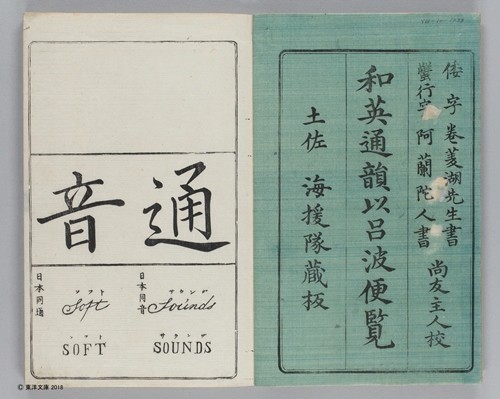 倭字 巻菱湖先生書
蟹行字 阿蘭陀人書 尚友主人校
和英通韻以呂波便覧
土佐 海援隊蔵板
通音
日本同音
サウンヅ
Sounds
サウンヅ
SOUNDS
日本同通
ソフト
Soft
ソフト
SOFT
© 東洋文庫 2018